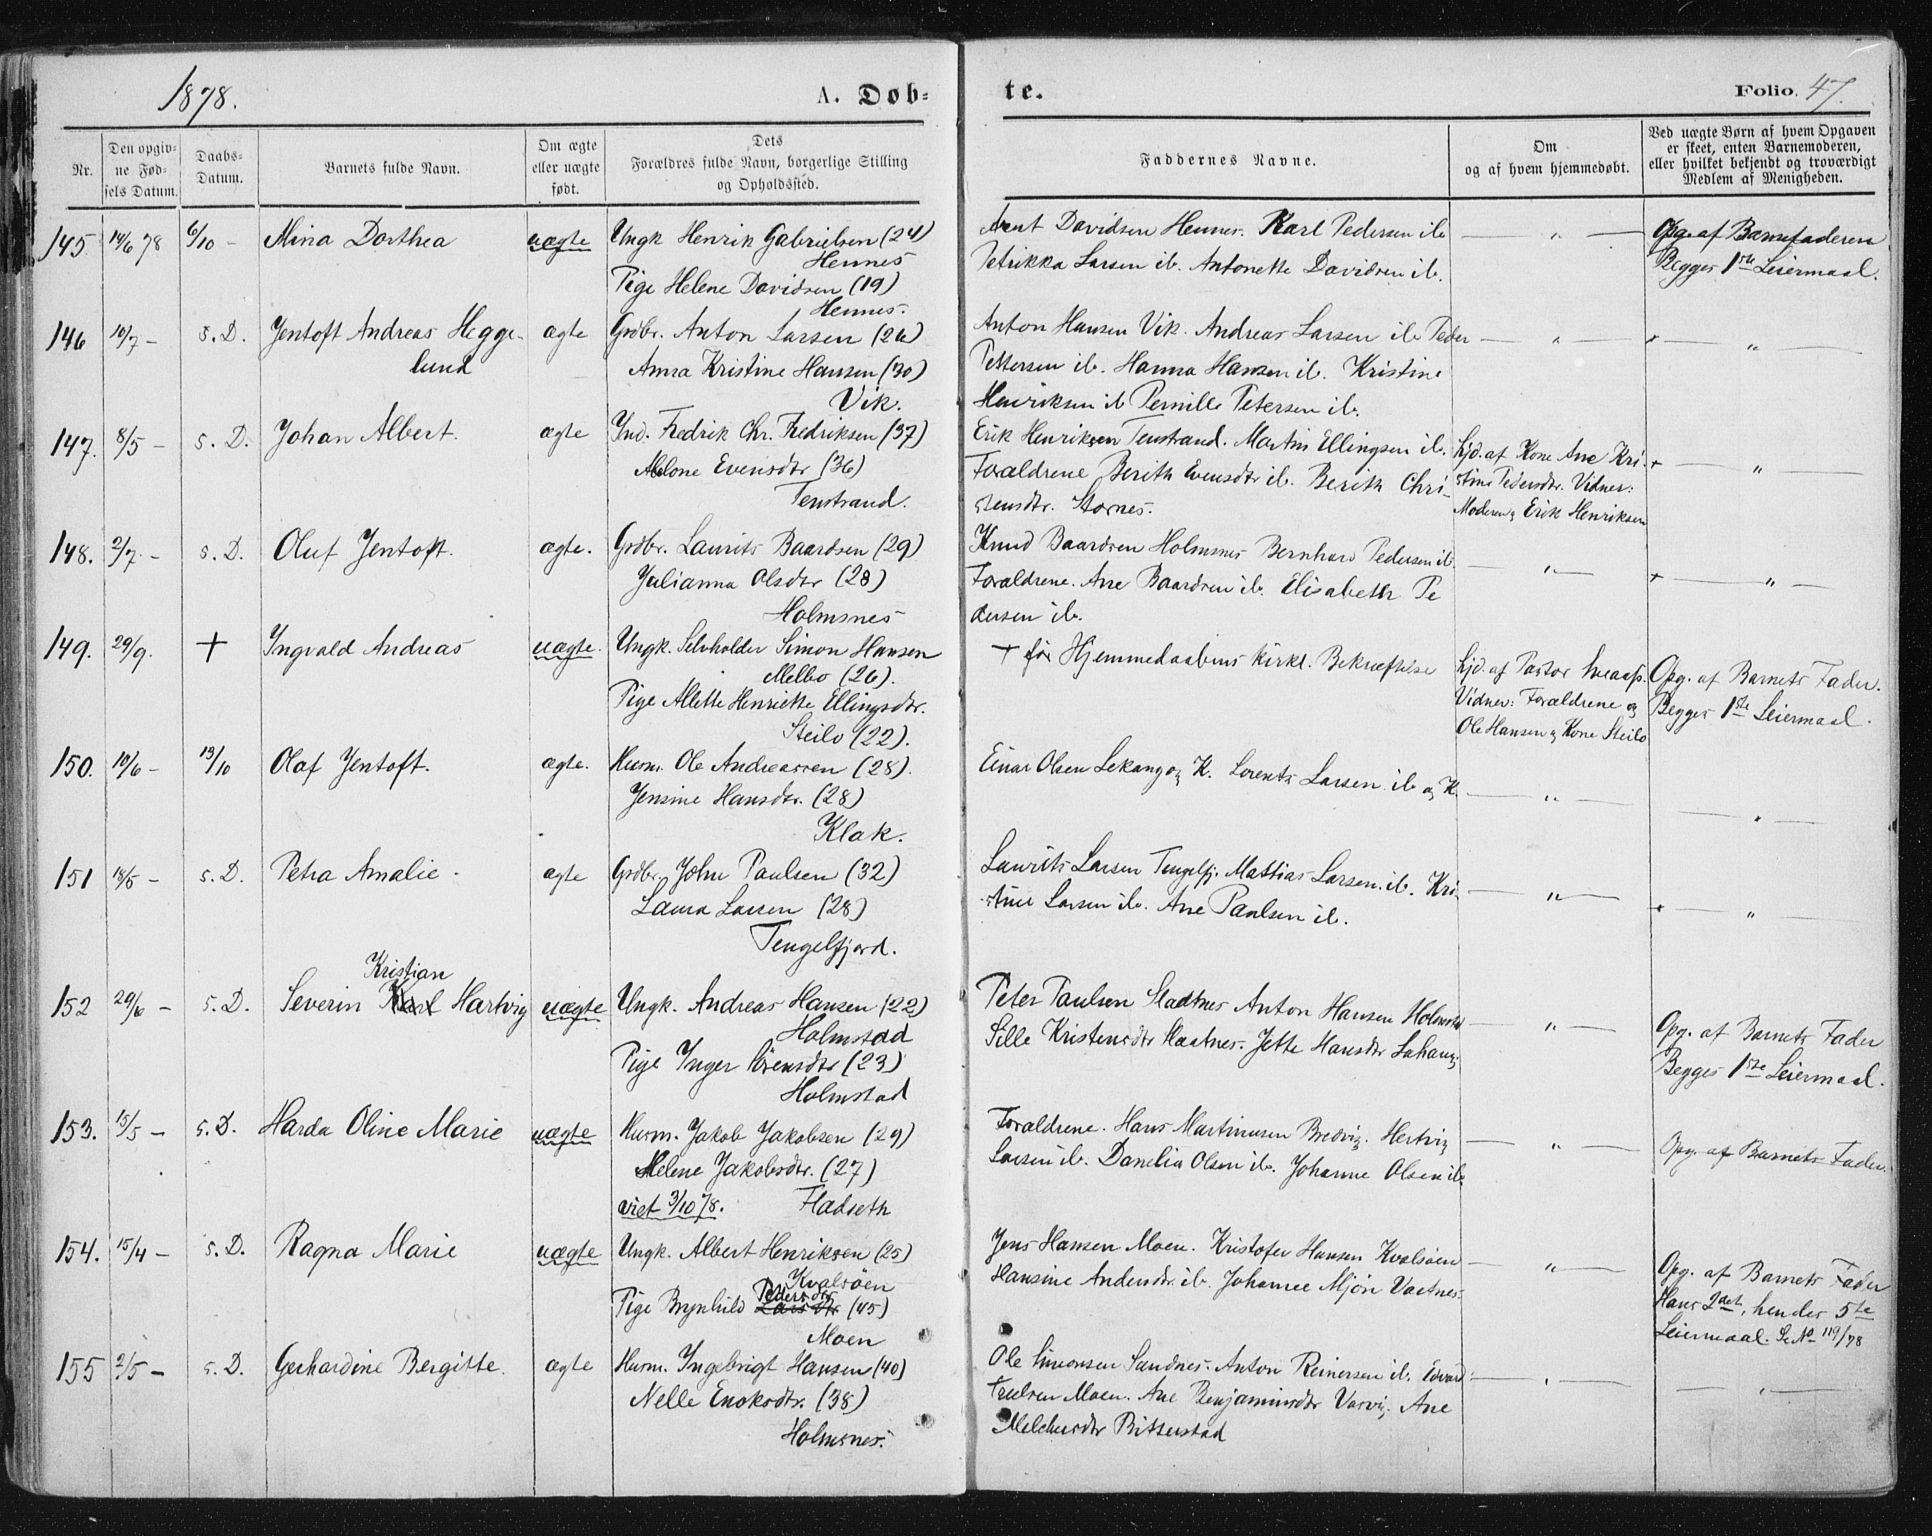 1878.
A. Døb-
te.
Folio. 47.
Nr.
Den opgiv-
ne Fød-
sels Datum.
Daabs-
Datum.
Barnets fulde Navn.
Om ægte
eller uægte
født.
Dets
Forældres fulde Navn, borgerlige Stilling
og Opholdssted.
Faddernes Navne.
Om
og af hvem hjemmedøbt.
Ved uægte Børn af hvem Opgaven
er skeet, enten Barnemoderen,
eller hvilket bekjendt og troværdigt
Medlem af Menigheden.
145 14/6 78 6/10 - Mina Dorthea uægte Ungk. Henrik Gabrielsen (24)
Hennes
Pige Helene Davidsen (19)
Hennes.
Arnt Davidsen Hennes. Karl Pedersen ib.
Petrikka Larsen ib. Antonette Davidsen ib.
— " —
Opg. af Barnefaderen
Begges 1ste Leiermaal.
146 10/7 - s. D. Jentoft Andreas Hegge-
lund
ægte Grdbr. Anton Larsen (26)
Anna Kristine Hansen (30)
Vik.
Anton Hansen Vik. Andreas Larsen ib. Peder
Pettersen ib. Hanna Hansen ib. Kristine
Henriksen ib Pernille Petersen ib.
— " —
— " —
147. 8/5 - s. D. Johan Albert. ægte Ind. Fredrik Chr. Fredriksen (37)
Malone Evensdtr (36)
Tenstrand.
Erik Henriksen Tenstrand. Martin Ellingsen ib.
Forældrene Berith Evensdtr ib. Berith Chri-
stensdtr. Stornes.
Hjd. af Kone Ane Kri-
stine Pedersdtr. Vidner:
Moderen og Erik Henriksen
— " —
148. 2/7. - s. D. Oluf Jentoft. ægte. Grdbr. Laurits Baardsen (29)
Julianna Olsdtr (28)
Holmsnes
Knud Baardsen Holmsnes Bernhard Pedersen ib.
Forældrene. Ane Baardsen ib. Elisabeth Pe
dersen ib.
— " —
— " —
149. 29/9. + Ingvald Andreas uægte. Ungk. Selvholder Simon Hansen
Melbo (26).
Pige Alette Henriette Ellingsdtr.
Steilo (22).
+ før Hjemmedaabens kirkl. Bekræftelse
Hjd. af Pastor
Vidner: Forældrene og
Ole Hansen og Kone Steilo
Opg. af Barnets Fader.
Begges 1ste Leiermaal.
150. 10/6 - 13/10 Olaf Jentoft. ægte. Husm. Ole Andreassen (28).
Jensine Hansdtr. (28)
Klak.
Einar Olsen Lekang og K. Lorents Larsen ib og K.
— " —
— " —
151 18/5 - s. D. Petra Amalie. ægte Grdbr. John Paulsen (32)
Laura Larsen (28)
Tengelfjord.
Laurits Larsen Tengelfj. Mattias Larsen ib. Kri-
stine Larsen ib. Ane Paulsen ib.
— " —
— " —
152 29/6 - s. D. Severin Karl Hartvig
Kristian
uægte Ungk. Andreas Hansen (22)
Holmstad
Pige Inger Sörensdtr (23)
Holmstad
Peter Paulsen Slaatnes Anton Hansen Holmstad
Sille Kristensdtr Slaatnes. Jette Hansdtr
— " —
Opg. af Barnets Fader
Begges 1ste Leiermaal.
153. 15/5 - s. D. Harda Oline Marie uægte Husm. Jakob Jakobsen (29)
Helene Jakobsdtr. (27)
viet 3/10 78. Fladseth
Forældrene. Hans Martinusen Bredvig. Hertvig
Larsen ib. Danelia Olsen ib. Johanne Olsen ib.
— " —
Opg. af Barnets Fader.
154. 15/4 - s. D. Ragna Marie uægte Ungk. Albert Henriksen (25)
Kvalsöen
Pige Brynhild Larsdtr (45)
Pedersdtr
Moen
Jens Hansen Moen. Kristofer Hansen Kvalsöen
Hansine Andersdtr ib. Johanne Mjön Vaatnes.
— " —
Opg. af Barnets Fader
Hans 2det, hendes 5te
Leiermaal. Se No 119/78
155 2/5 - s. D. Gerhardine Bergitte. ægte Husm. Ingebrigt Hansen (40)
Nelle Enoksdtr. (38)
Holmsnes.
Ole Simonsen Sandnes. Anton Reinersen ib. Edvard
Truelsen Moen. Ane Benjaminsdtr Varvig. Ane
Melchersdtr Bitterstad
— " —
— " —